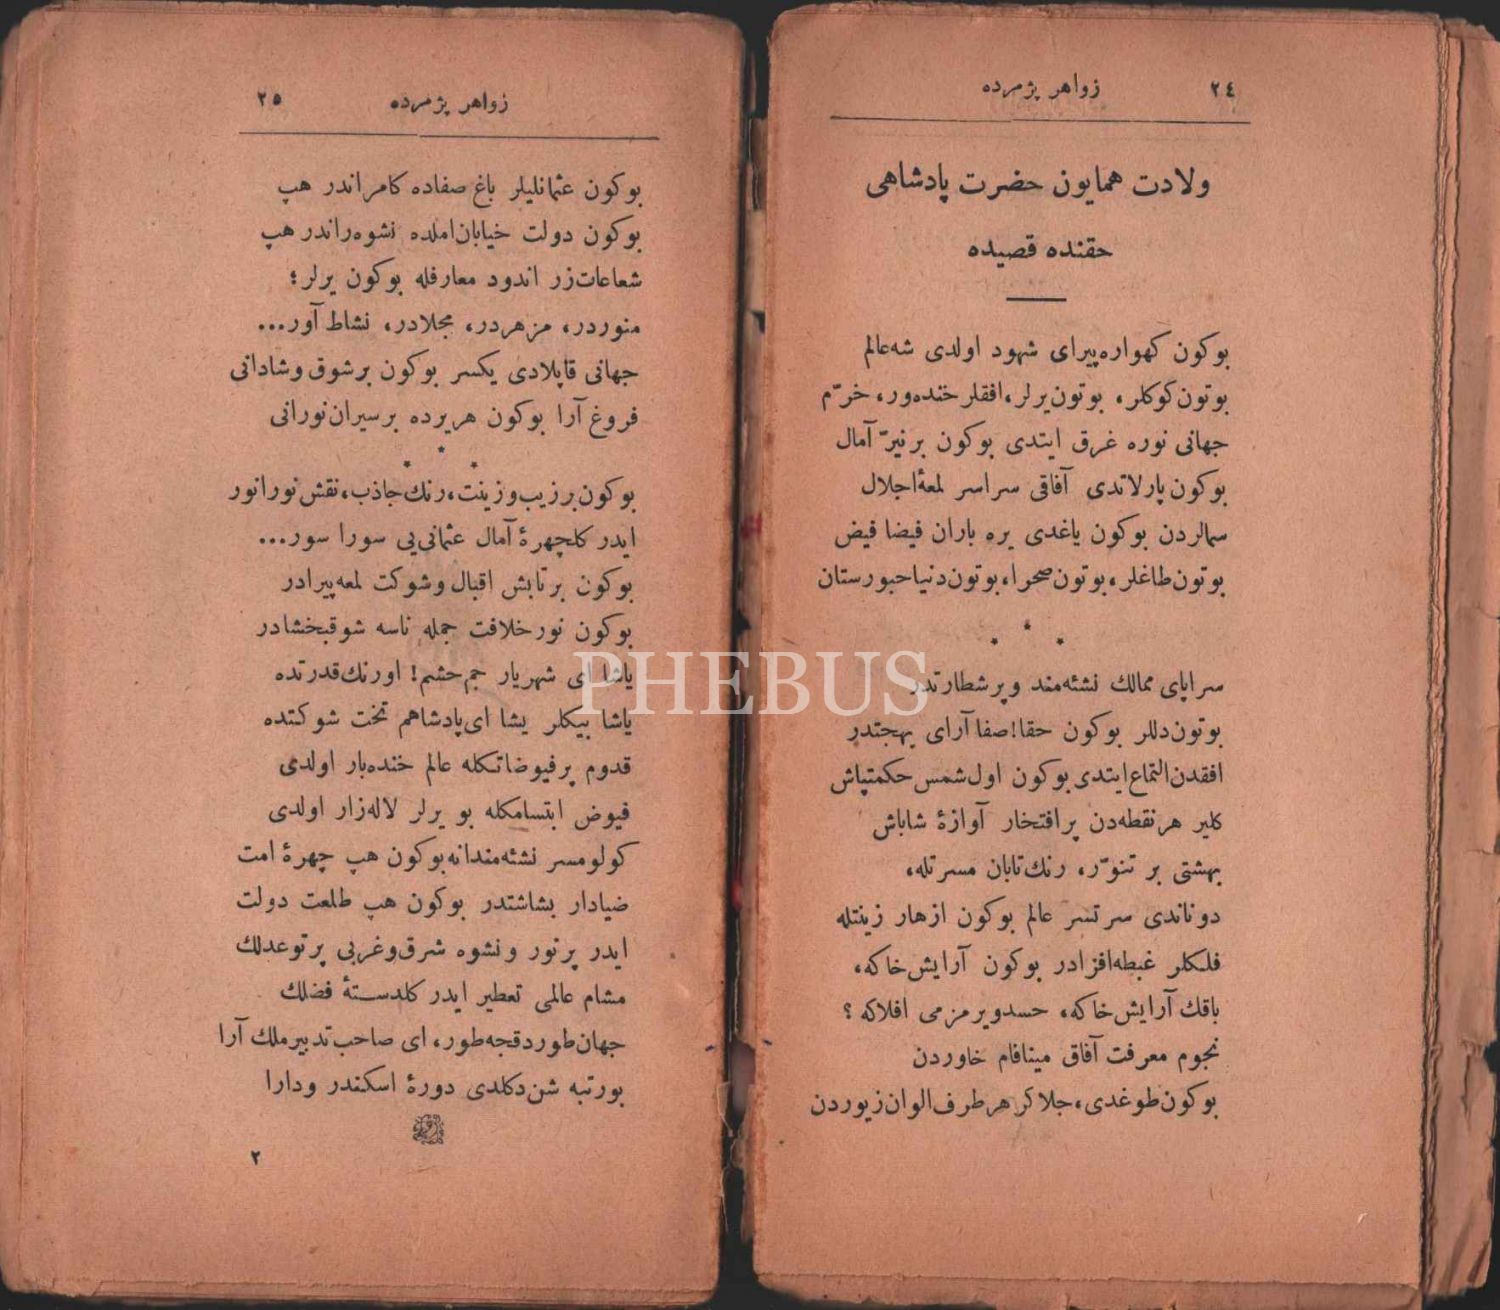 ٢٤
زواهر پژمرده
ولادت همایون حضرت پادشاهی
حقنده قصیده
بوكون كهواره‌پیرای شهود اولدی شه‌عالم
بوتون كوكلر، بوتون یرلر، افقلر خنده‌ور، خرّم
جهانی نوره غرق ایتدی بوكون بر نیرّ آمال
بوكون پارلاتدی آفاقی سراسر لمعهٔ اجلال
سمالردن بوكون یاغدی یره باران فیضا فیض
بوتون طاغلر، بوتون صحرا، بوتون دنیا حبورستان
* * *
سراپای ممالك نشئه‌مند و پر شطارتدر
بوتون دللر بوكون حقا! صفا آرای بهجتدر
افقدن التماع ایتدی بوكون اول شمس حكمتپاش
كلیر هر نقطه‌دن پر افتخار آوازهٔ شاباش
بهشتی بر تنوّر، رنك تابان مسرتله،
دوناندی سرتسر عالم بوكون ازهار زینتله
فلكلر غبطه‌افزادر بوكون آرایش خاكه،
باقك آرایش خاكه، حسد ویرمزمی افلاكه ؟
نجوم معرفت آفاق مینافام خاوردن
بوكون طوغدی، جلاكر هر طرف الوان زیوردن
٢٥
زواهر پژمرده
بوكون عثمانلیلر باغ صفاده كامراندر هپ
بوكون دولت خیابان املده نشوه‌راندر هپ
شعاعات زر اندود معارفله بوكون یرلر ؛
منوردر، مزهردر، مجلادر، نشاط آور...
جهانی قاپلادی یكسر بوكون بر شوق و شادانی
فروغ آرا بوكون هر یرده بر سیران نورانی
* * *
بوكون بر زیب و زینت، رنك جاذب، نقش نورانور
ایدر كلچهرهٔ آمال عثمانی‌یی سورا سور...
بوكون بر تابش اقبال و شوكت لمعه‌پیرادر
بوكون نور خلافت جمله ناسه شوقبخشادر
یاشا ای شهریار جم حشم! اورنك قدرتده
یاشا بیكلر یشا ای پادشاهم تخت شوكتده
قدوم پر فیوضاتكله عالم خنده‌بار اولدی
فیوض ابتسامكله بو یرلر لاله‌زار اولدی
كولومسر نشئه‌مندانه بوكون هپ چهرهٔ امت
ضیادار بشاشتدر بوكون هپ طلعت دولت
ایدر پر نور و نشوه شرق و غربی پرتو عدلك
مشام عالمی تعطیر ایدر كلدستهٔ فضلك
جهان طوردقجه طور، ای صاحب تدبیر ملك آرا
بورتبه شن دكلدی دورهٔ اسكندر و دارا
٢
PHEBUS